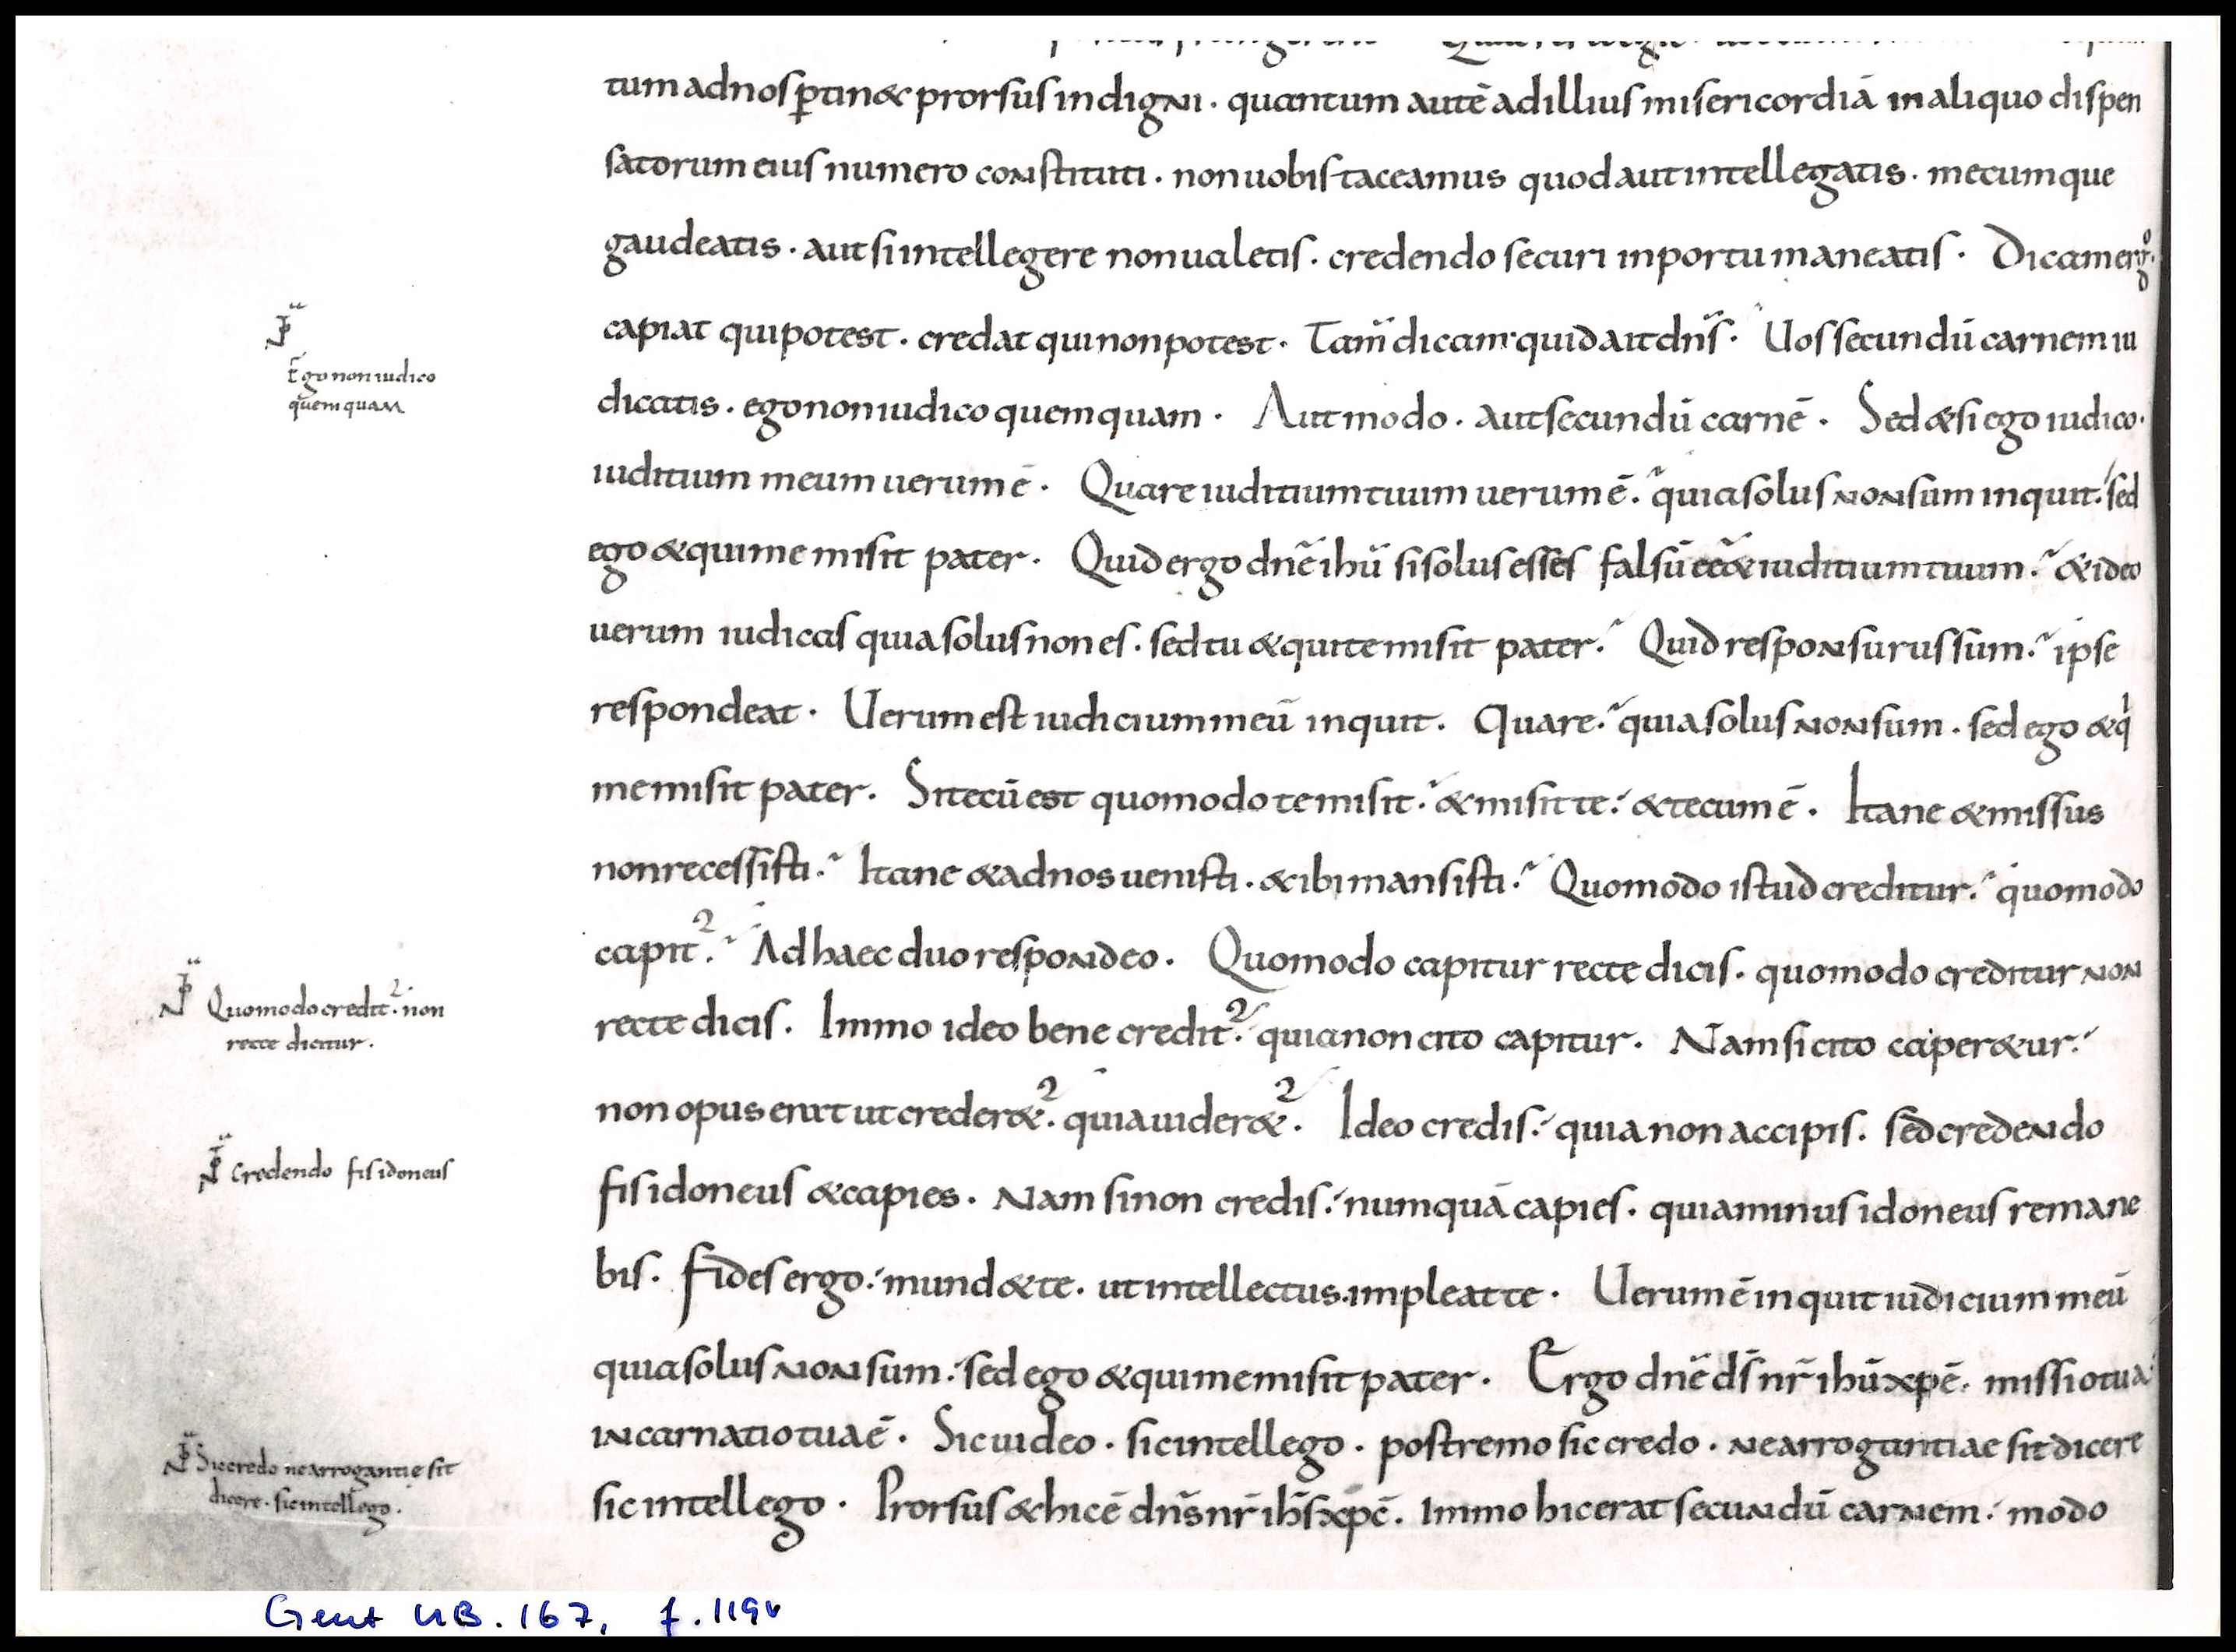 tum ad nos ꝑtin& prorsus indigni · quantum autē ad illius misericordiā in aliquo dispen
satorum eius numero constituti · non uobis taceamus quod aut intellegatis · mecumque
gaudeatis · aut si intellegere non ualetis · credendo securi in portu maneatis · Dicam erg̊ ·
capiat qui potest · credat qui non potest · Tam̄ dicam quid ait dn̄s · Uos secundū carnem iu
Ego non iudico
quemquam
dicatis · ego non iudico quemquam · Aut modo · aut secundū carnē · Sed &si ego iudico ·
iuditium meum uerum ē · Quare iuditium tuum uerum ē · quia solus non sum inquit · sed
ego & qui me misit pater · Quid ergo dn̄e ihū si solus esses falsū eē& iuditium tuum · & ideo
uerum iudicas quia solus non es · sed tu & qui te misit pater · Quid responsurus sum · ipse
respondeat · Uerum est iudicium meū inquit · Quare · quia solus non sum · sed ego & qⁱ
me misit pater · Si tecū est quomodo te misit · & misit te · & tecum ē · Itane & missus
non recessisti · Itane & ad nos uenisti · & ibi mansisti · Quomodo istud creditur · quomodo
capit² · Ad haec duo respondeo · Quomodo capitur recte dicis · quomodo creditur non
Quomodo credit² · non
recte dicitur ·
recte dicis · Immo ideo bene credit² · quia non cito capitur · Nam si cito caper&ur ·
non opus erat ut creder&² · quia uider&² · Ideo credis · quia non accipis · sed credendo
Credendo fis idoneus
fis idoneus & capies · Nam si non credis · numquā capies · quia minus idoneus remane
bis · Fides ergo · mund& te · ut intellectus impleat te · Uerum ē inquit iudicium meū
quia solus non sum · sed ego & qui me misit pater · Ergo dn̄e ds̄ nr̄ ihū xpē · missio tua
incarnatio tua ē · Sic uideo · sic intellego · postremo sic credo · ne arrogantiae sit dicere
Sic credo ne arrogantię sit
dicere · sic intellego ·
sic intellego · Prorsus & hic ē dn̄s nr̄ ihs̄ xpc̄ · Immo hic erat secundū carnem · modo
Gent UB. 167, f. 119v